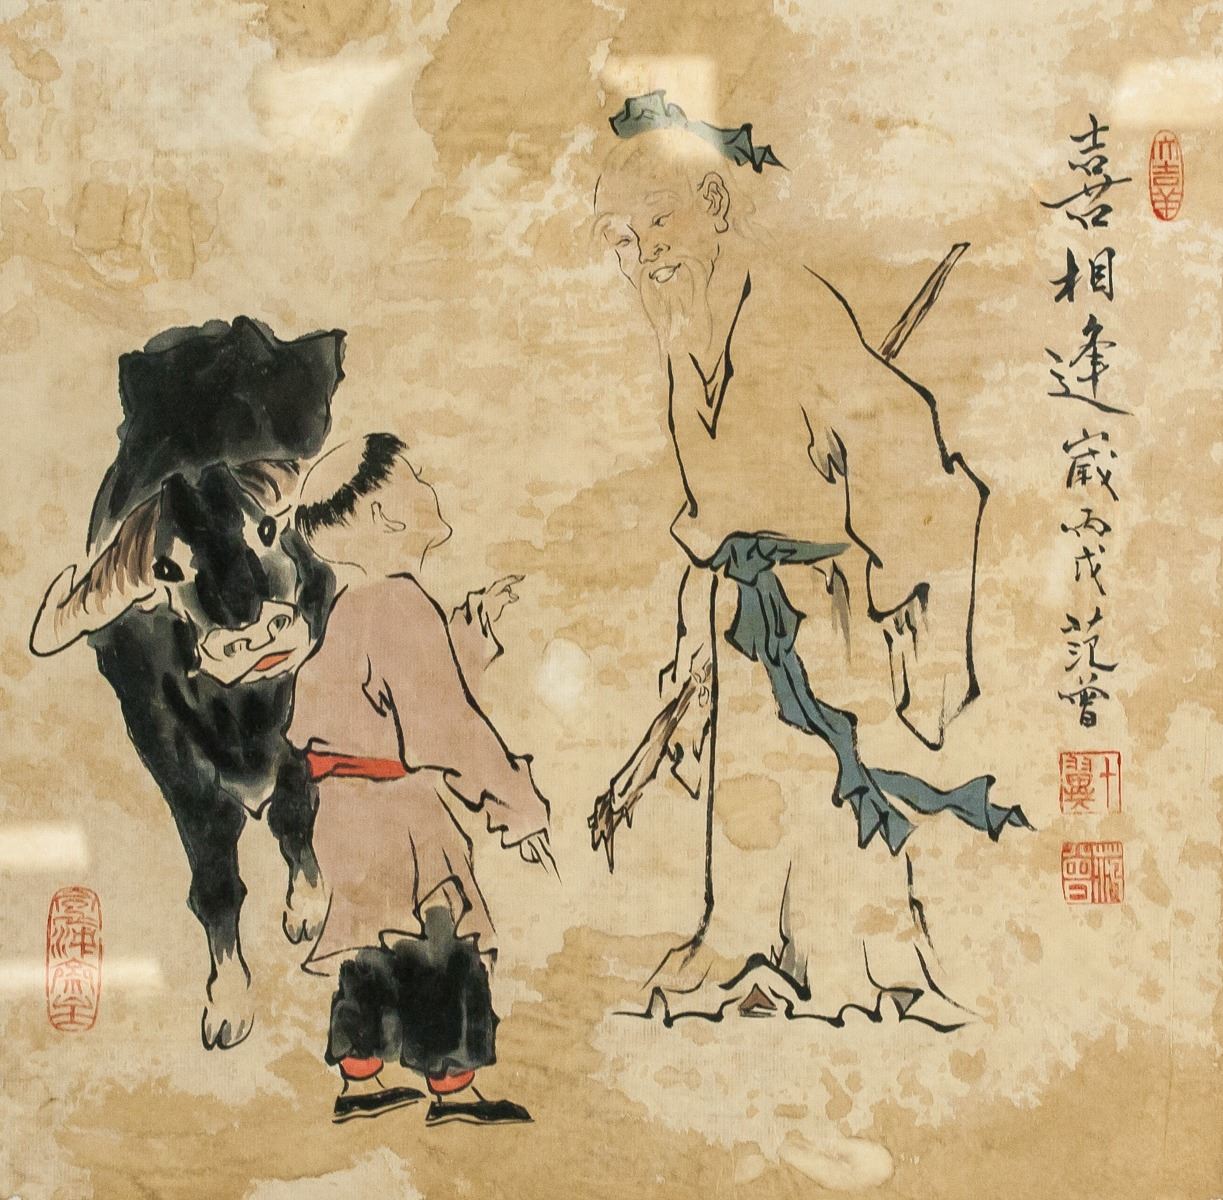 喜相逢 歲丙戌 范曾
大吉羊
十翼
范曾